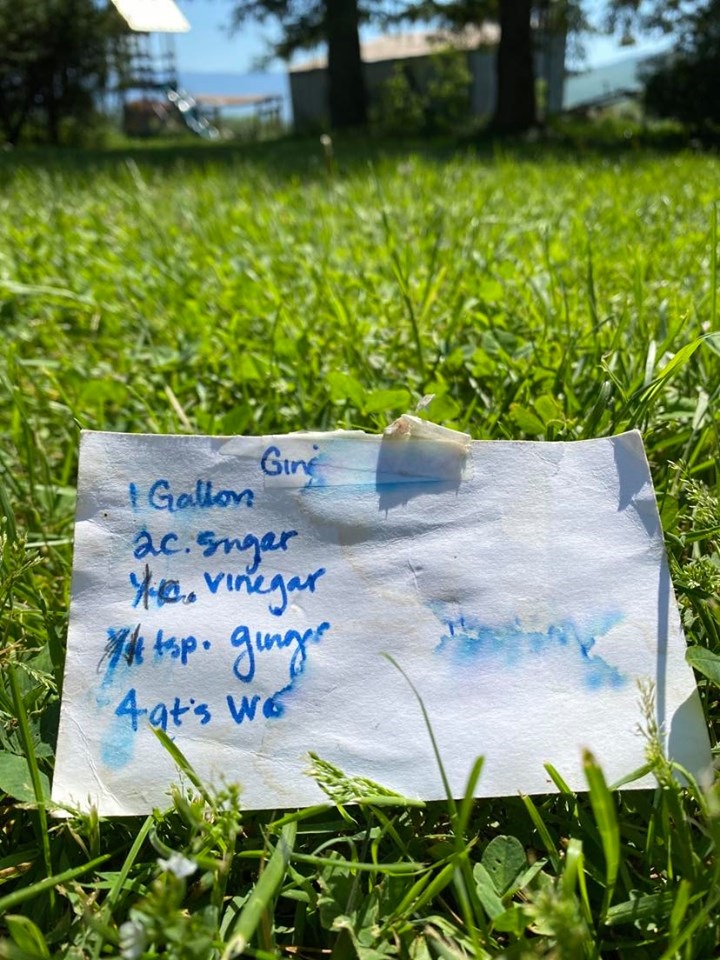 Gin
1 Gallon
2c. sugar
1 c. vinegar
1 tsp. ginger
4 qt's